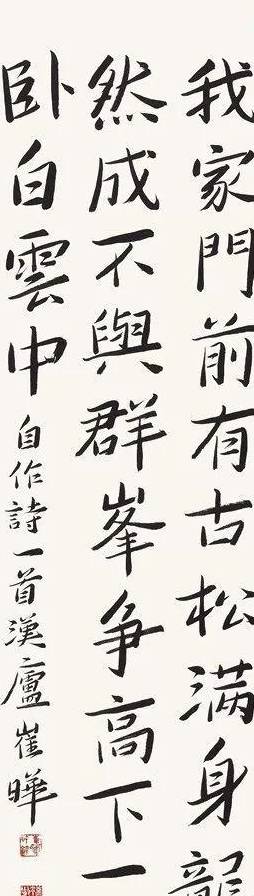 我家門前有古松满身龍
然成不與群峯争高下一
卧白雲中
自作詩一首漢廬崔曄